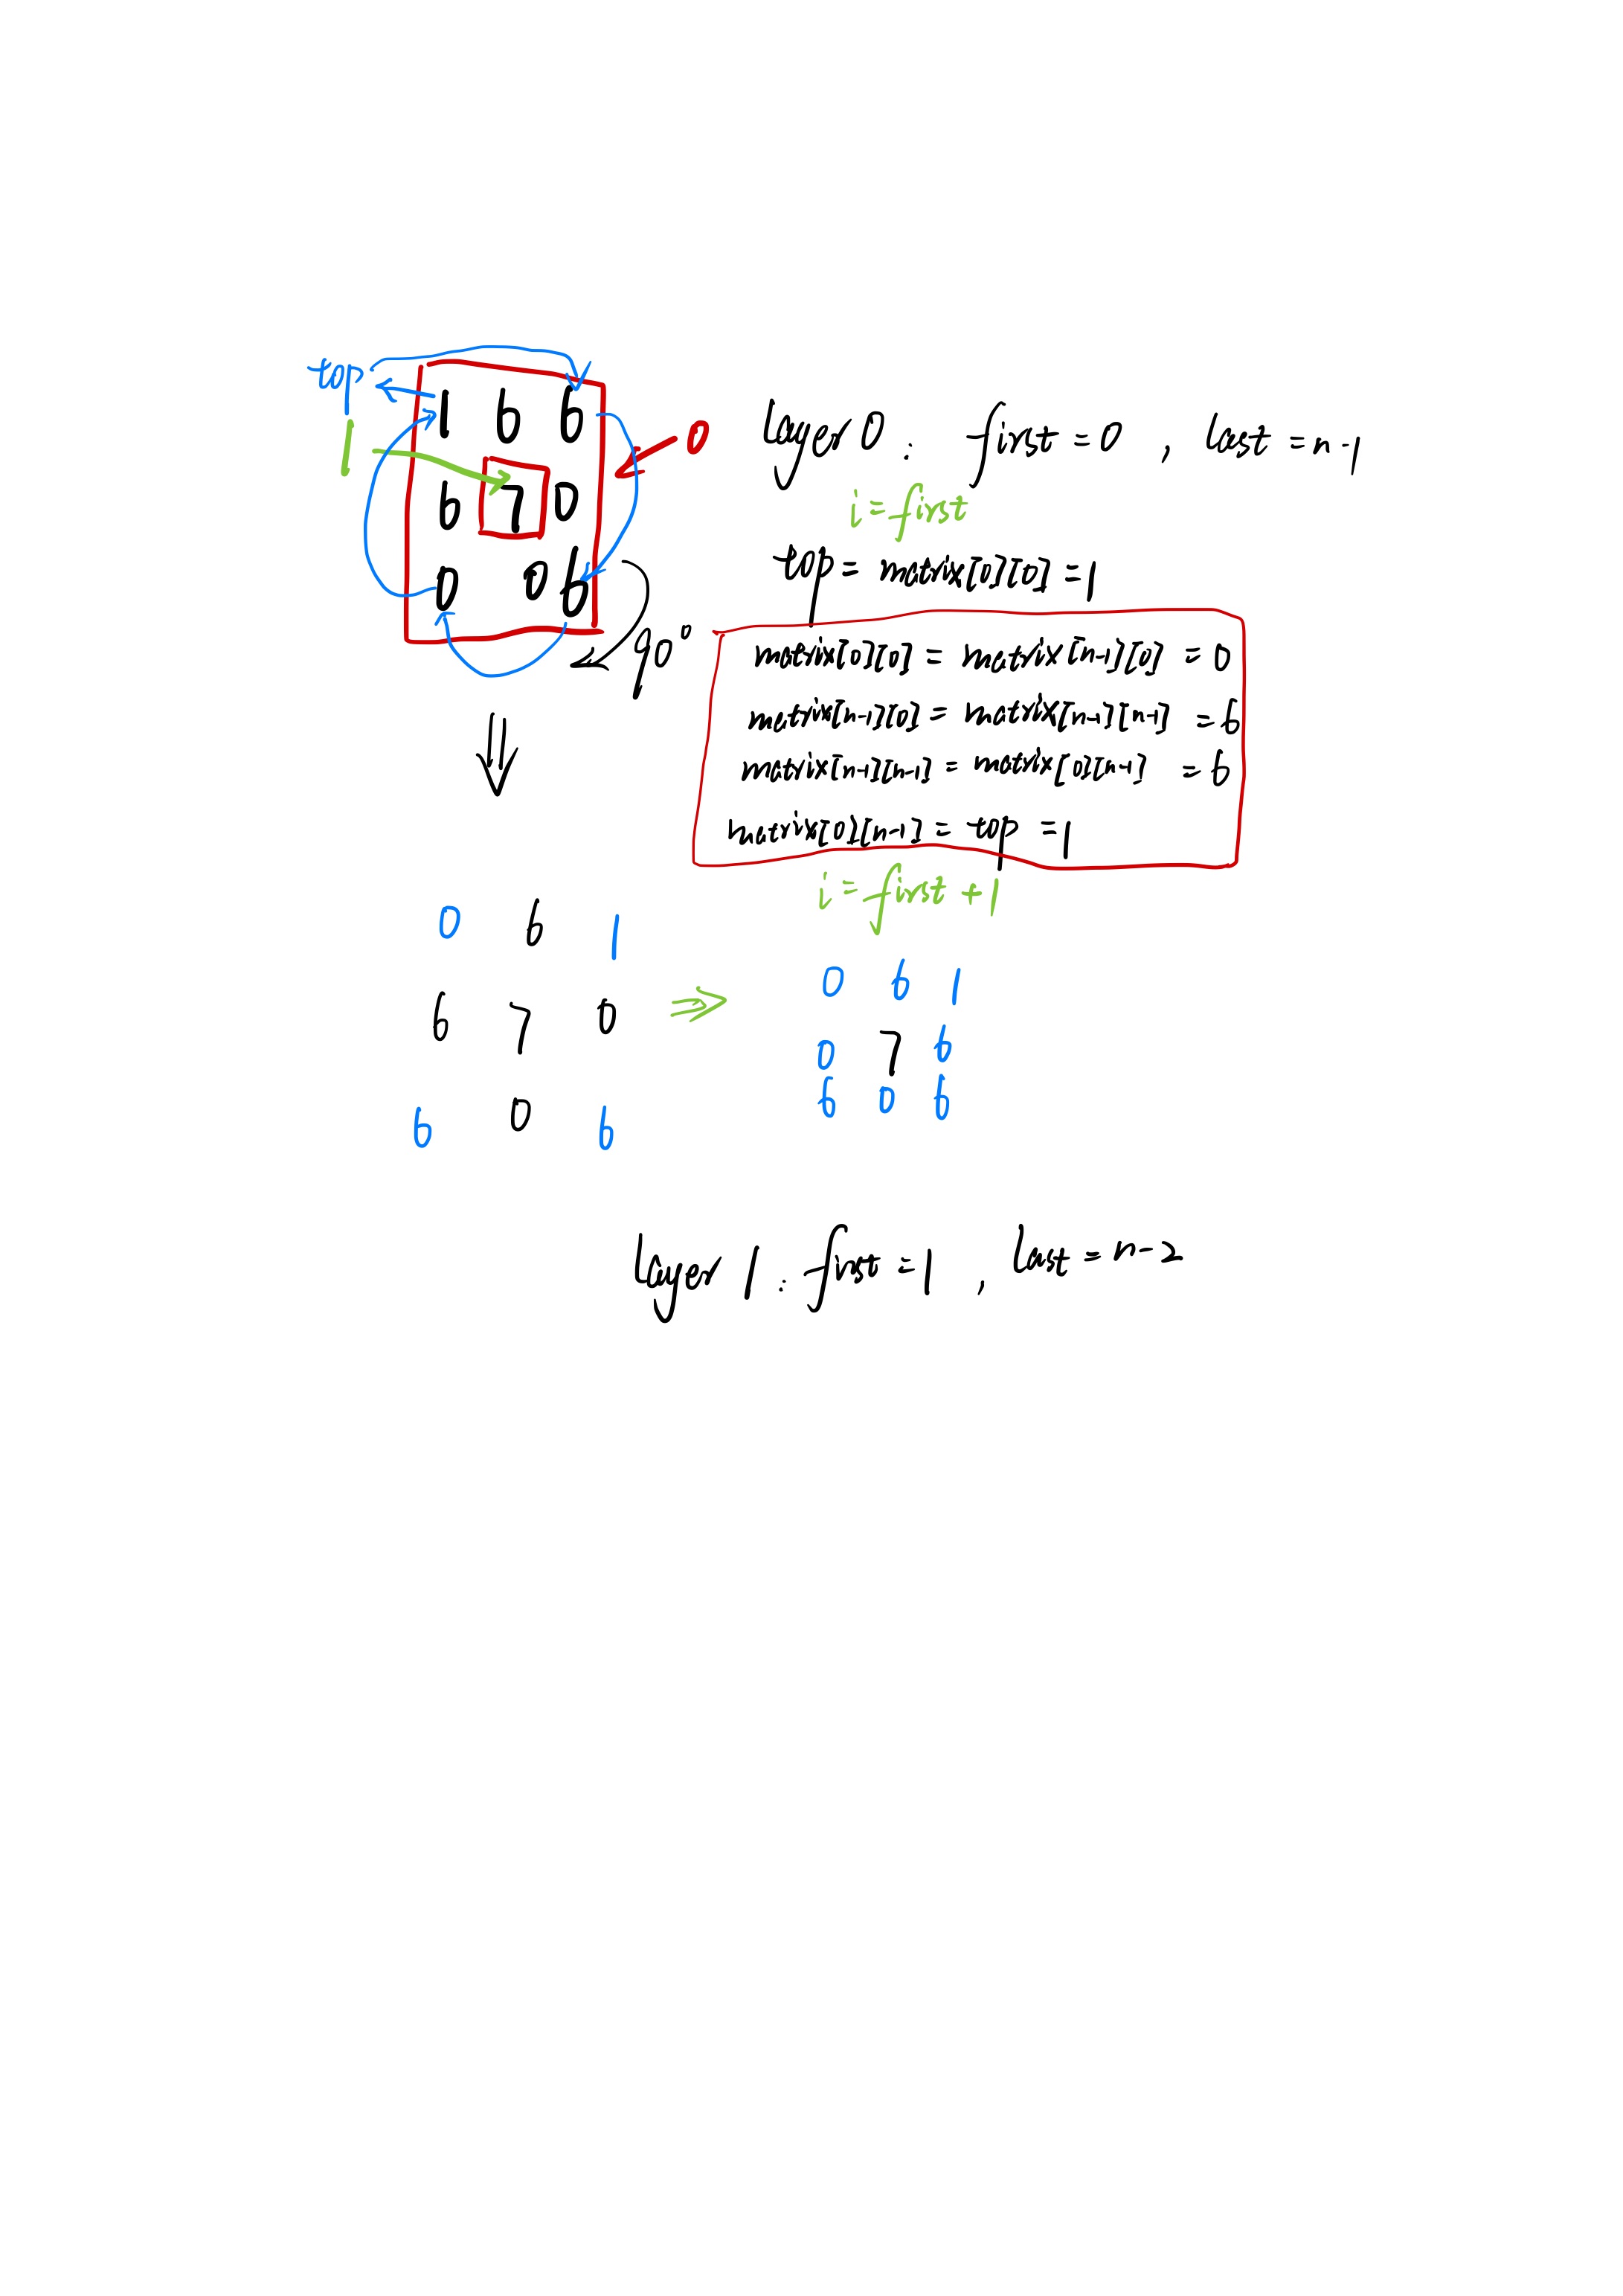 top
1 6 6
0
1
6 7 0
0 0 6
90°
layer 0 : first = 0 , last = n-1
i = first
top = matrix[0][0] = 1
matrix[0][0] = matrix[n-1][0] = 0
matrix[n-1][0] = matrix[n-1][n-1] = 6
matrix[n-1][n-1] = matrix[0][n-1] = 6
matrix[0][n-1] = top = 1
i = first + 1
0 6 1
6 7 0
6 0 6
0 6 1
0 7 6
6 0 6
layer 1 : first = 1 , last = n-2